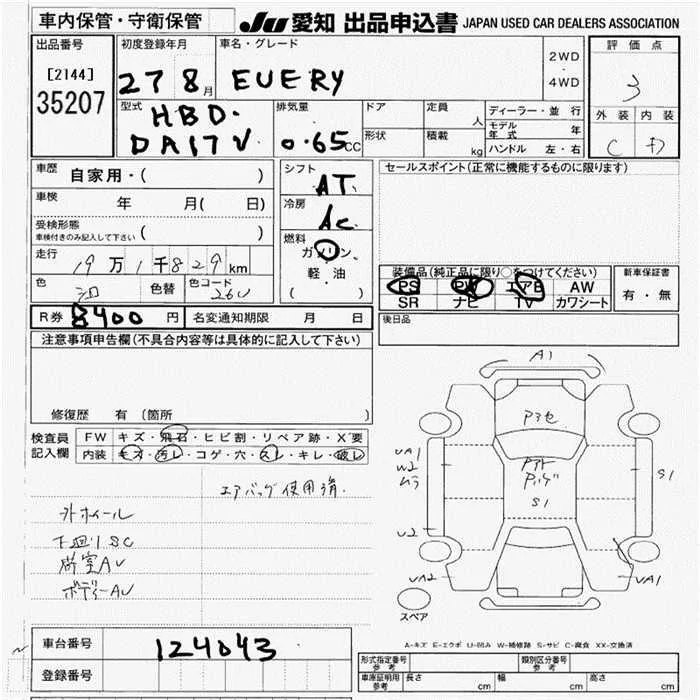 車内保管・守衛保管
JU 愛知 出品申込書 JAPAN USED CAR DEALERS ASSOCIATION
出品番号
[2144]
35207
初度登録年月
27 8 月
車名・グレード
EVERY
2WD
・
4WD
評価点
3
外装 内装
C D
型式
HBD・
DA17V
排気量
0.65 CC
ドア
形状
定員
人
積載
kg
ディーラー・並 行
モデル年式 年
ハンドル 左・右
車歴
自家用・( )
車検
年 月( 日)
受検形態
車検付きのみ記入して下さい ( )
走行
19万1千829km
色
色替
色コード
26U
シフト
AT
冷房
AC
燃料
ガソリン
軽・油
( )
セールスポイント(正常に機能するものに限ります)
装備品(純正品に限り○をつけてください)
PS PW エアB AW
SR ナビ TV カワシート
新車保証書
有・無
R券 8400 円
名変通知期限 月 日
後日品
注意事項申告欄(不具合内容等は具体的に記入して下さい)
修復歴 有(箇所 )
検査員
記入欄
FW キズ・飛石・ヒビ割・リペア跡・X要
内装 キズ・汚レ・コゲ・穴・スレ・キレ・破レ
エアバッグ使用済.
外ホイール
下廻りSC
荷室AU
ボディーAU
A1
UA1
W2
ムラ
U2
UA2
S1
S1
UA1
スペア
車台番号
124043
登録番号
A-キズ E-エクボ U-凹み W-補修跡 S-サビ C-腐食 XX-交換済
形式指定番号
参考
類別区分番号
参考
車庫証明用
参考
長さ cm
幅 cm
高さ cm